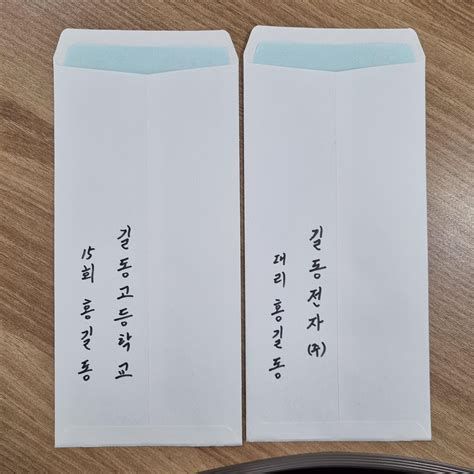 길동고등학교
15회 홍길동
길동전자(주)
대리 홍길동